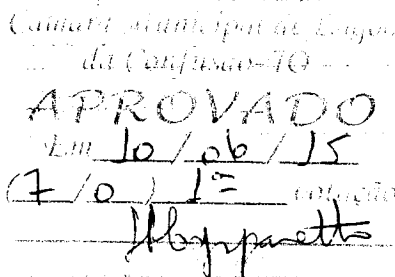 Câmara Municipal de Lagoa
da Confusão-TO
APROVADO
Em 10 / 06 / 15
(7 / 0) 1ª votação